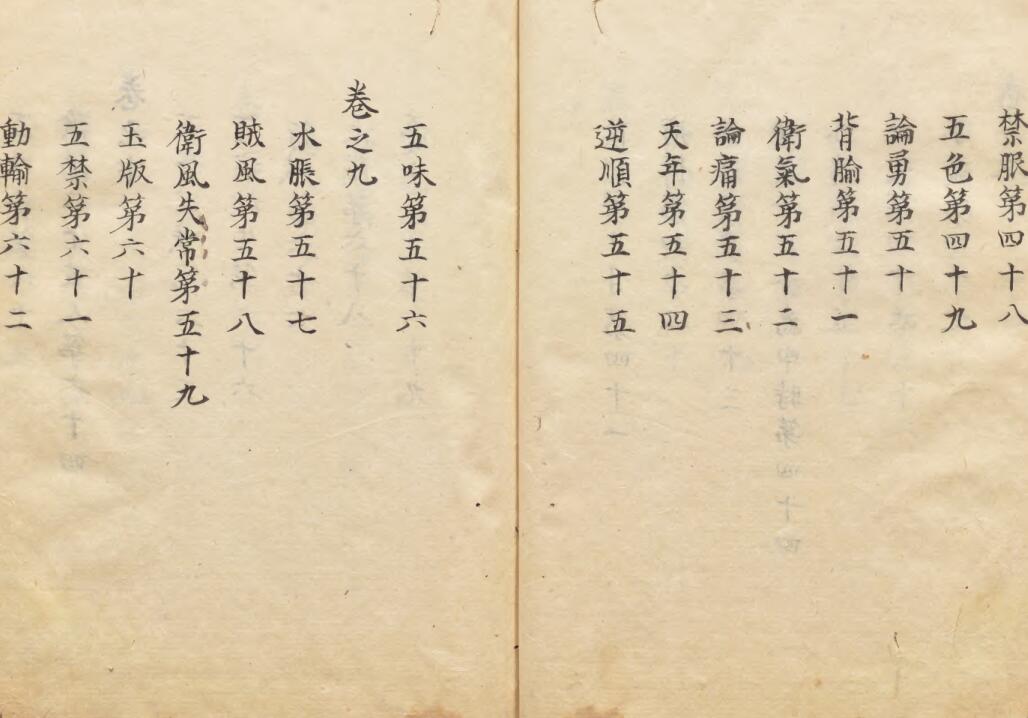 禁服第四十八
五色第四十九
論勇第五十
背腧第五十一
衛氣第五十二
論痛第五十三
天年第五十四
逆順第五十五
五味第五十六
卷之九
水脹第五十七
賊風第五十八
衛風失常第五十九
玉版第六十
五禁第六十一
動輸第六十二